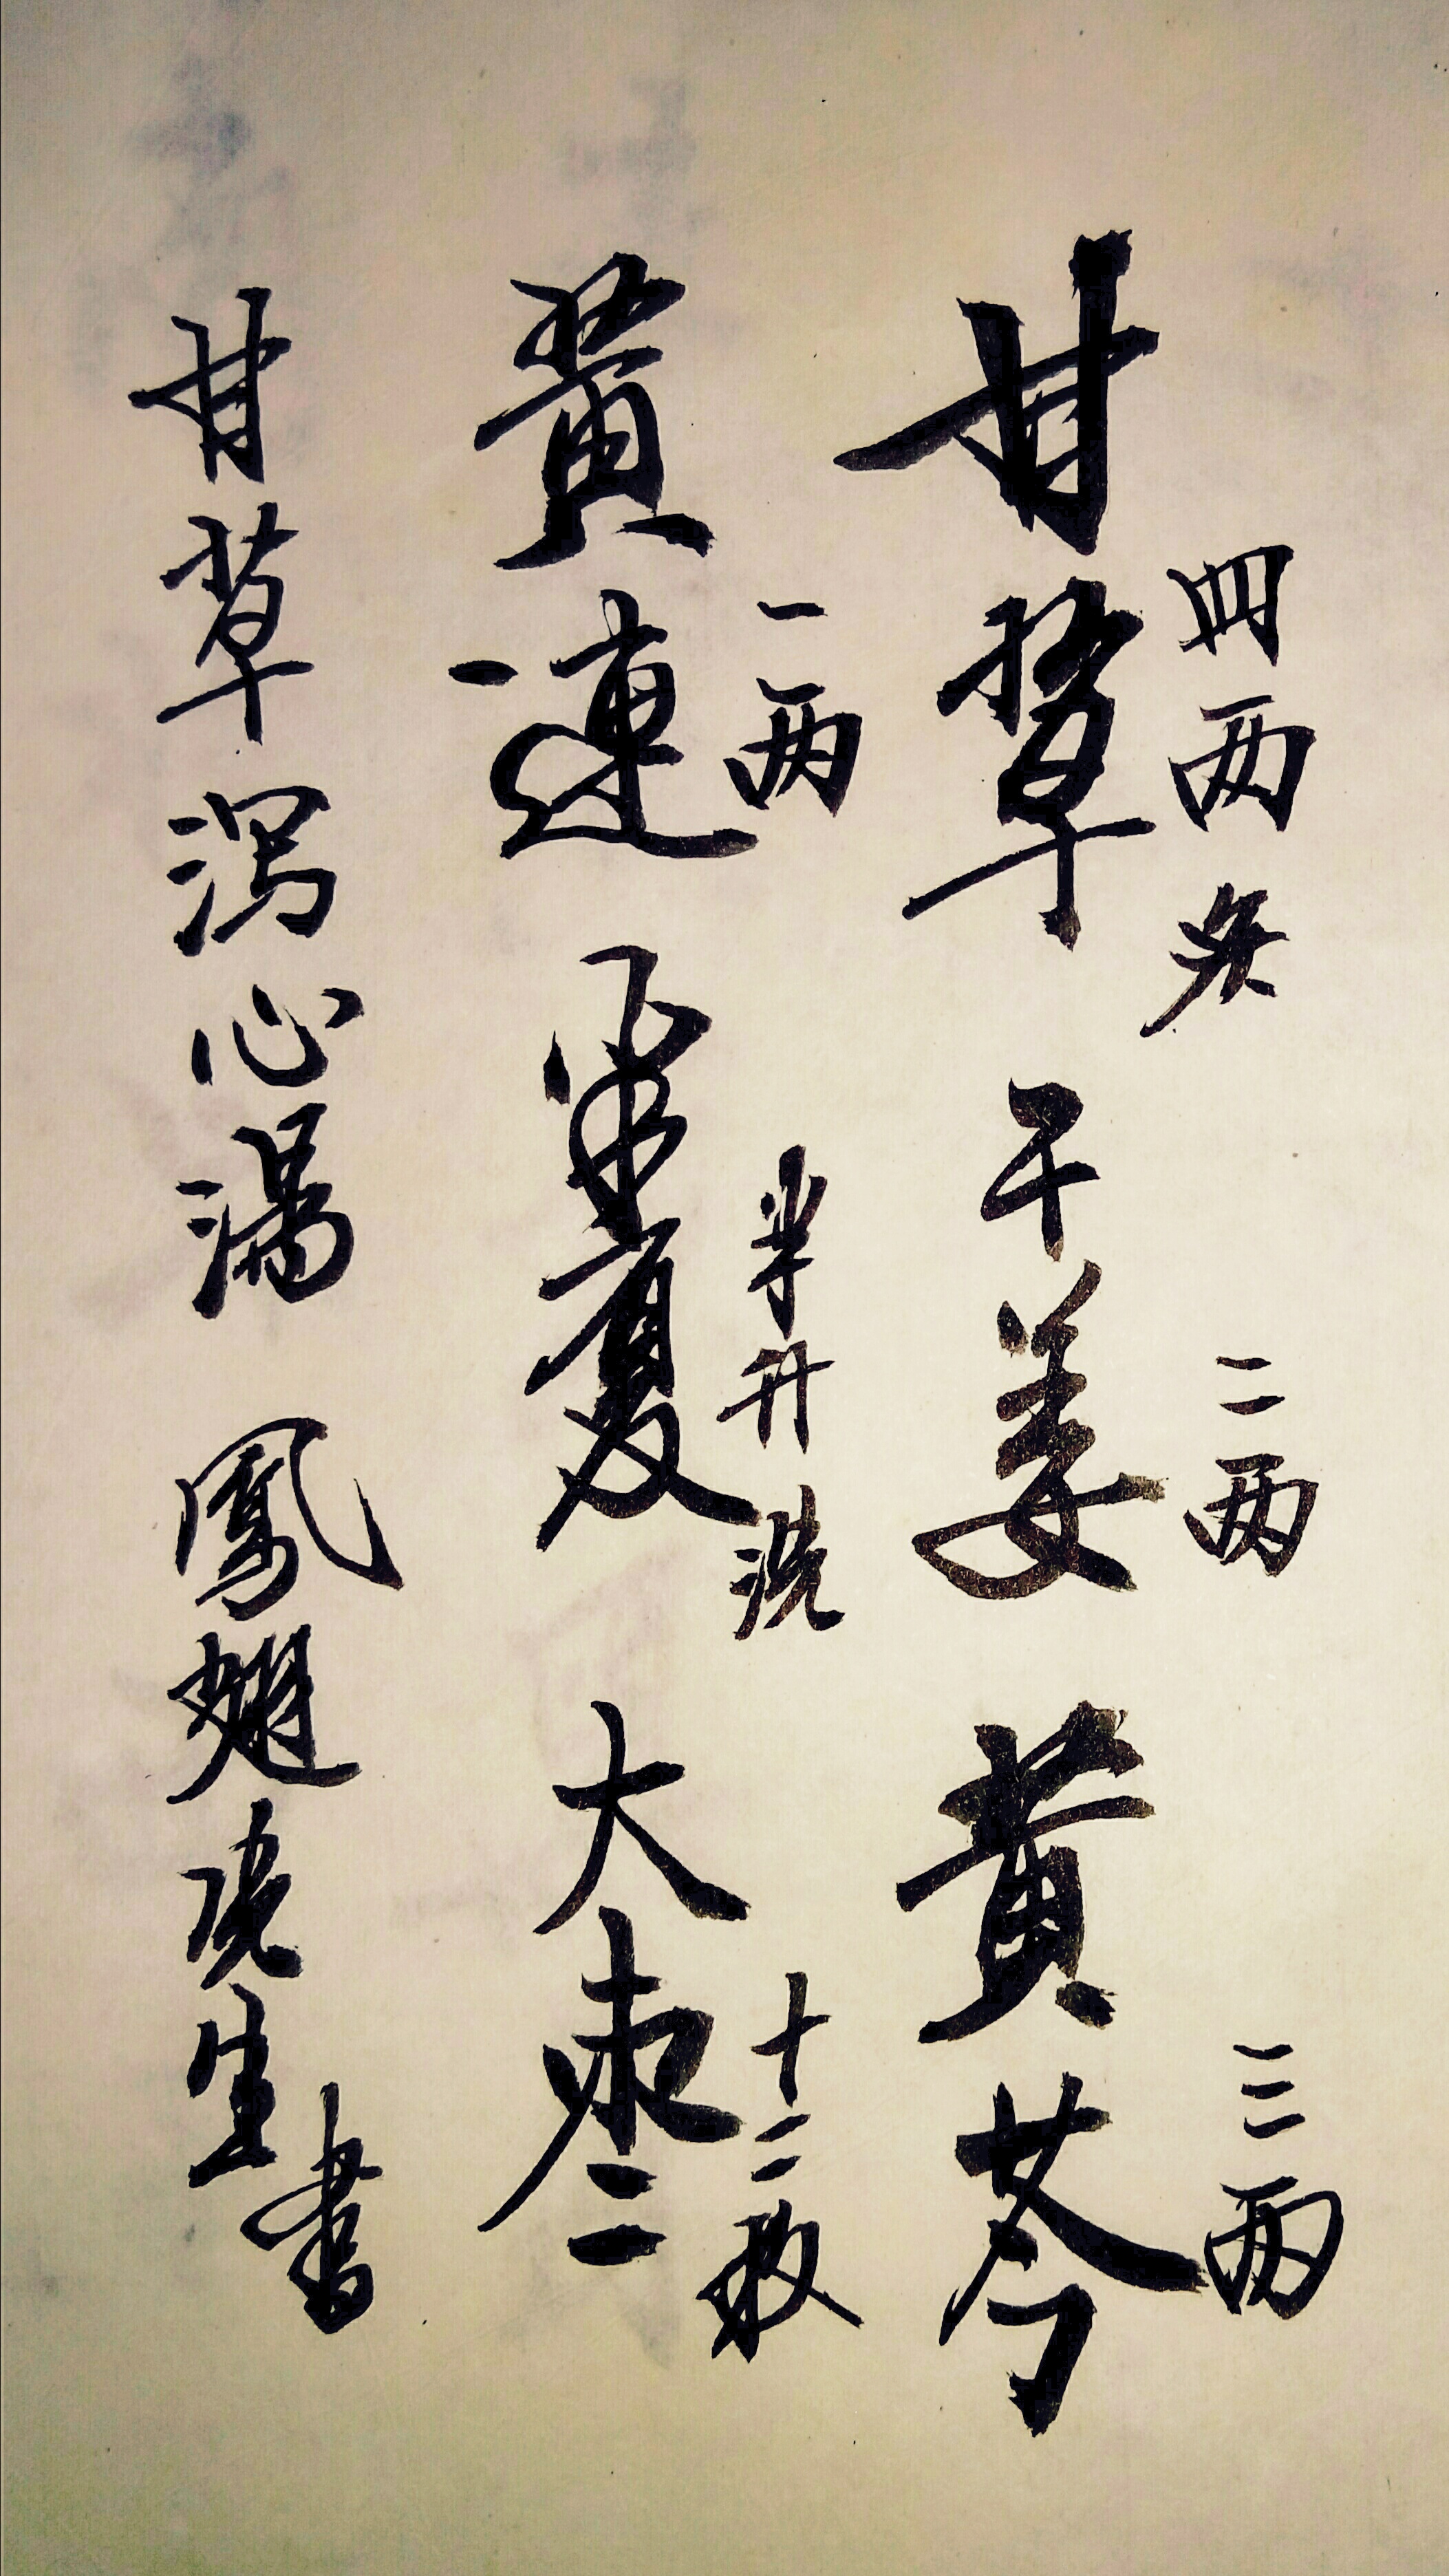 甘草 四两炙 干姜 二两 黄芩 三两
黄連 一两 半夏 半升洗 大枣 十二枚
甘草瀉心湯 鳳翅 生書